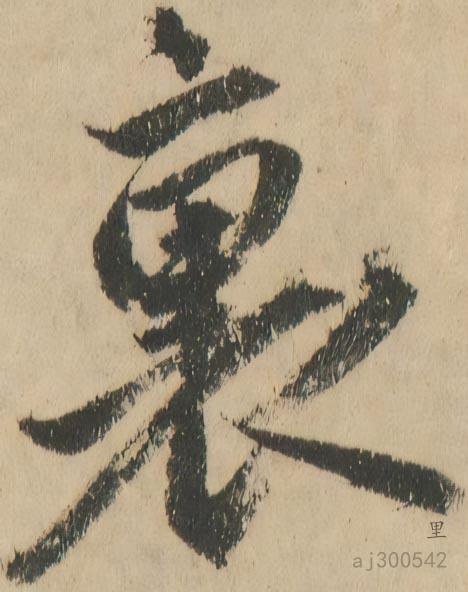 裏
里
aj300542